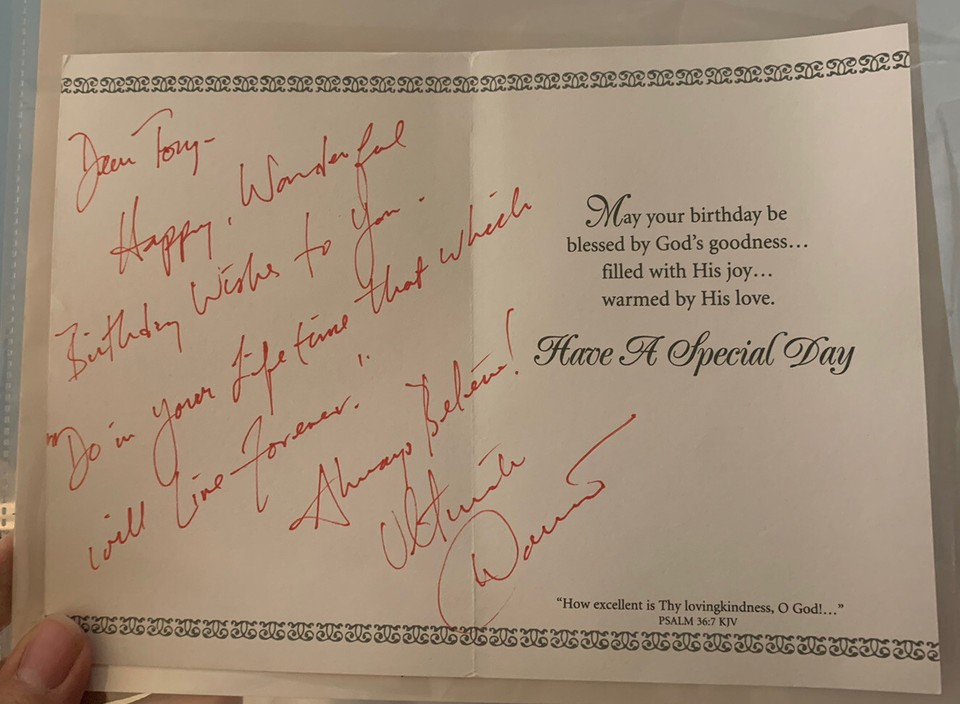 Dear Tony-
Happy, Wonderful
Birthday Wishes to You.
"Do in your Lifetime that which
will Live Forever."
Always Believe!
Ultimate
Warrior
May your birthday be
blessed by God's goodness…
filled with His joy…
warmed by His love.
Have A Special Day
"How excellent is Thy lovingkindness, O God!…"
PSALM 36:7 KJV